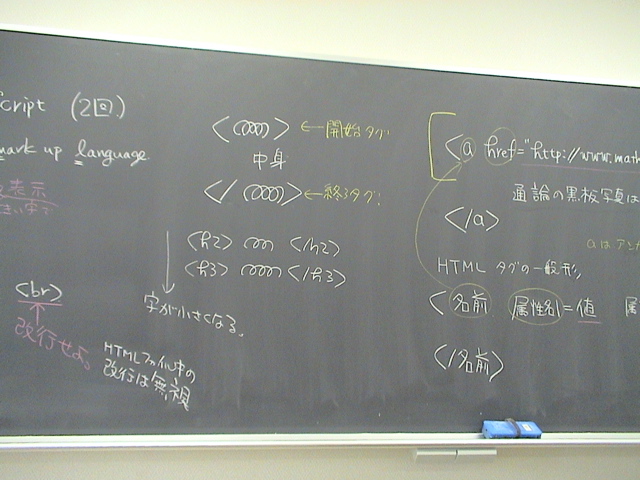 cript (2回)
mark up language
表示
<br>
改行せよ。
HTMLファイル中の
改行は無視
< > ←開始タグ
中身
</ > ←終了タグ
<h2> </h2>
<h3> </h3>
字が小さくなる。
<a href="http://www.math
通論の黒板写真は
</a>
aは
HTML タグの一般形
<名前 属性名=値 属
</名前>